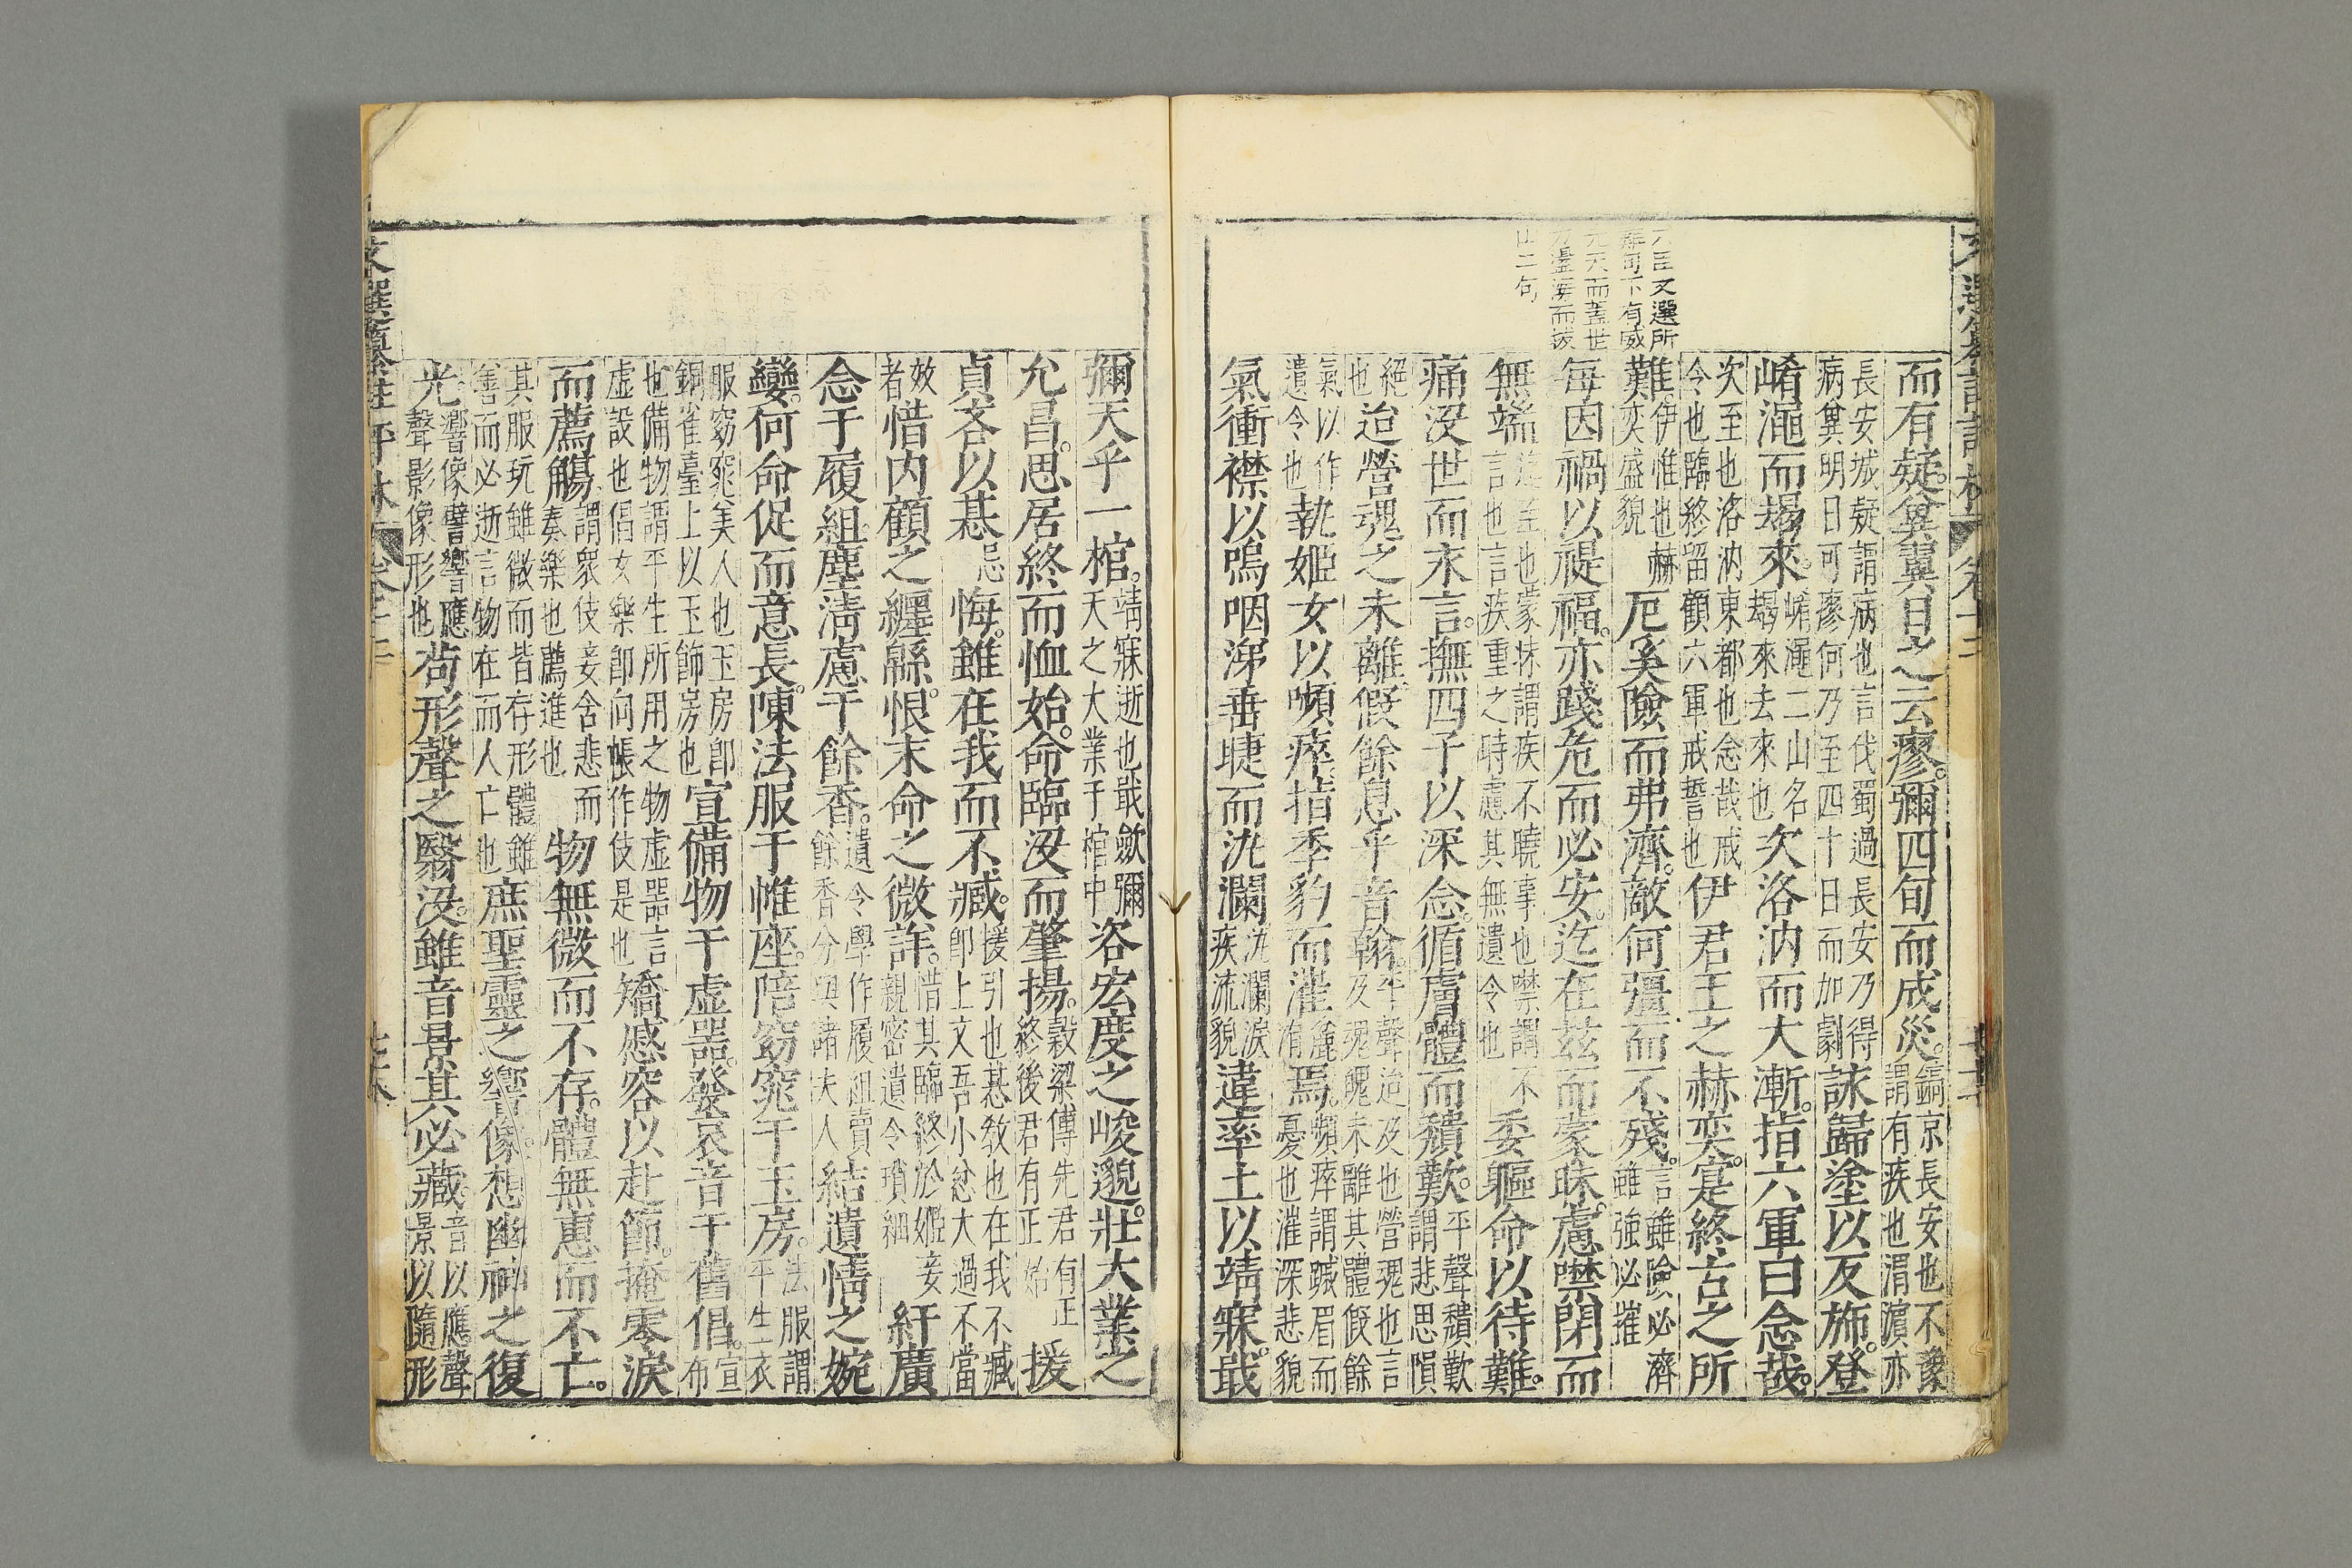 六臣文選所
難句下有威
先天而蓋世
力盪海而拔
山二句
而有疑。冀翼日之云瘳。彌四旬而成災。鎬京長安也不豫
謂有疾也渭濵亦
長安城疑謂病也言伐蜀過長安乃得
病冀明日可瘳何乃至四十日而加劇
詠歸塗以反旆。登
崤澠而朅來。崤澠二山名
朅來去來也
次洛汭而大漸。指六軍曰念哉。
次至也洛汭東都也念哉戒
令也臨終留顧六軍戒誓也
伊君王之赫奕。寔終古之所
難。伊惟也赫
奕盛貌
厄奚險而弗濟。敵何彊而不殘。言雖險必濟
雖強必摧
每因禍以禔福。亦踐危而必安。迄在茲而蒙昧。慮噤閉而
無端
迄至也蒙抹謂疾不曉事也噤謂不
言也言疾重之時慮其無遺令也
委軀命以待難。
痛没世而永言。撫四子以深念。循膚體而穨歎。平聲穨歎
謂悲思隕
絕
也
迨營魂之未離。假餘息乎音翰。平聲迨及也營魂也言
及魂魄未離其體假餘
氣以作
遺令也
執姬女以嚬瘁。指季豹而漼焉。嚬瘁謂蹙眉而
憂也漼深悲貌
氣衝襟以嗚咽。涕垂睫而汍瀾。汍瀾淚
疾流貌
違率土以靖寐。戢
彌天乎一棺。靖寐逝也戢斂彌
天之大業于棺中
咨宏度之峻邈。壯大業之
允昌。思居終而恤始。命臨没而肇揚。榖梁傳先君有正
終後君有正始
援
貞吝以惎
忌
悔。雖在我而不臧。援引也惎教也在我不臧
即上文吾小忿大過不當
效
者
惜內顧之纏緜。恨末命之微詳。惜其臨終於姬妾
親密遺令瑣細
紆廣
念于履組。塵清慮于餘香。遺令學作履組賣
餘香分與諸夫人
結遺情之婉
孌。何命促而意長。陳法服于帷座。陪窈窕于玉房。法服謂
平生衣
服窈窕美人也玉房即
銅雀臺上以玉飾房也
宣備物于虛噐。發哀音于舊倡。宣
布
也備物謂平生所用之物虛噐言
虛設也倡女樂即向帳作伎是也
矯慼容以赴節。掩零淚
而薦觴。謂衆伎妾含悲而
奏樂也薦進也
物無微而不存。體無惠而不亡。
其服玩雖微而皆存形體雖
善而必逝言物在而人亡也
庶聖靈之響像。想幽神之復
光。響像譬響應
聲影像形也
苟形聲之翳没。雖音景其必藏。音以應聲
景以隨形